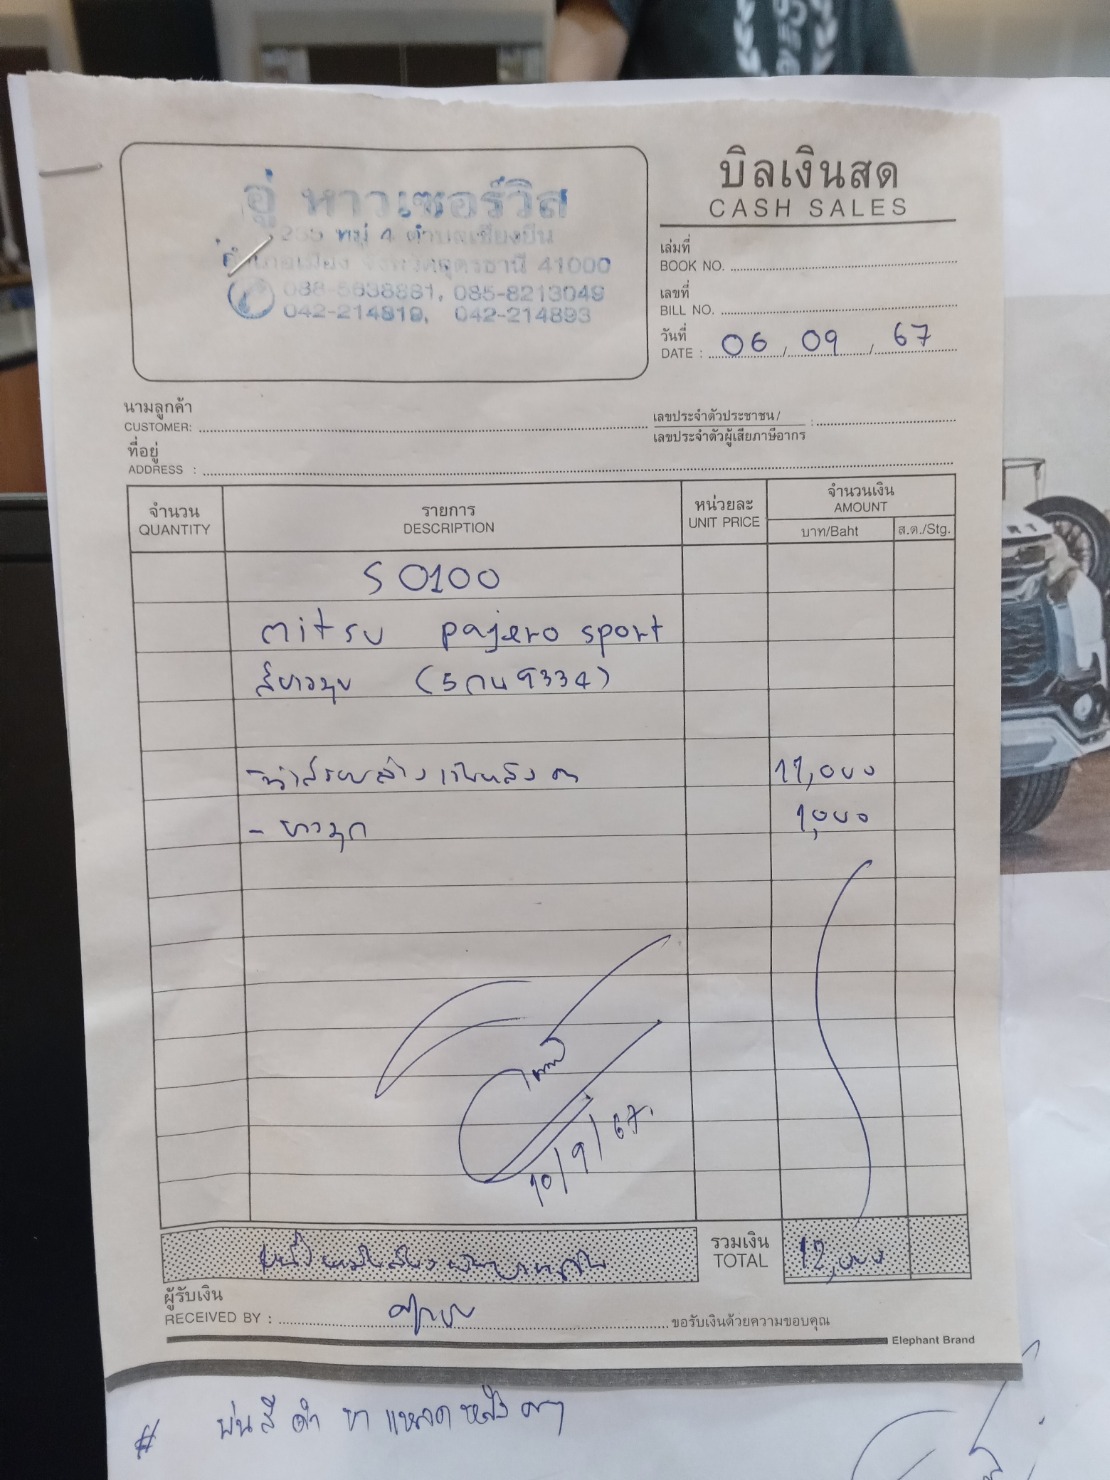 บิลเงินสด
CASH SALES
อู่ หาวเซอร์วิส
หมู่ 4 ตำบลเชียงยืน
อำเภอเมือง จังหวัดอุดรธานี 41000
085-8213049
042-214819, 042-214893
เล่มที่
BOOK NO.
เลขที่
BILL NO.
วันที่
DATE : 06 / 09 / 67
นามลูกค้า
CUSTOMER:
เลขประจำตัวประชาชน/ :
เลขประจำตัวผู้เสียภาษีอากร
ที่อยู่
ADDRESS :
จำนวน รายการ หน่วยละ จำนวนเงิน
QUANTITY DESCRIPTION UNIT PRICE AMOUNT
บาท/Baht ส.ต./Stg.
S 0100
mitsu pajero sport
สีขาวมุข (5กน 9334)
11,000
- ขาวมุก 1,000
10/9/67.
หนึ่งหมื่นสองพันบาทถ้วน
รวมเงิน
TOTAL 12,000
ผู้รับเงิน
RECEIVED BY :
ขอรับเงินด้วยความขอบคุณ
Elephant Brand
# พ่นสี ดำ ขา หลัง